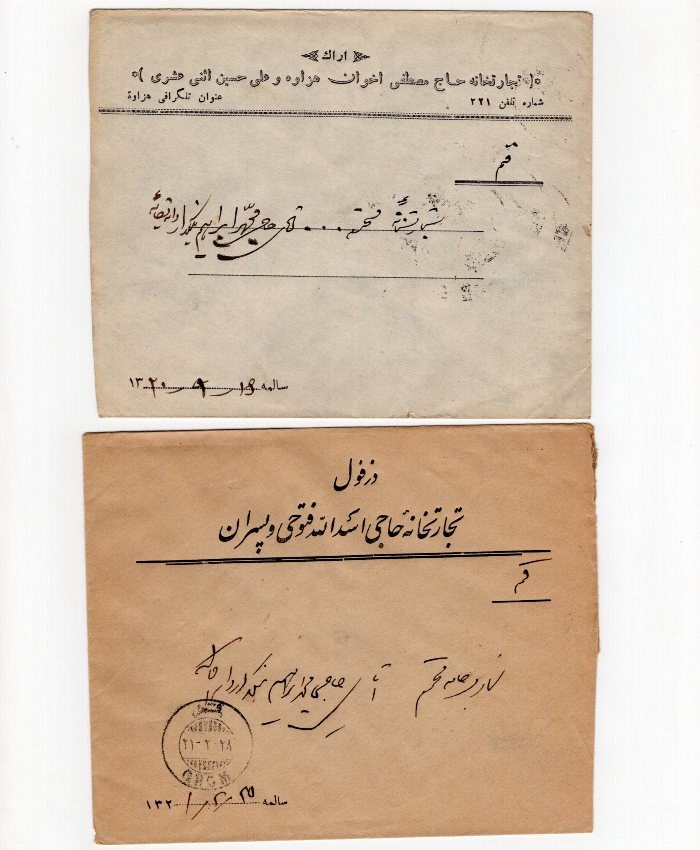 اراك
تجارتخانه حاج مصطفی اخوان هزاوه و علی حسین اثنی عشری
شماره تلفن ۲۲۱ عنوان تلگرافی هزاوة
قم
محترم ... آقای حاجی محمد ابراهیم
سالمه ۱۹ ر ۹ ر ۱۳۲۰
دزفول
تجارتخانهٔ حاجی اسدالله فتوحی و پسران
قم
محترم آقای حاجی محمد ابراهیم
۲۱-۲-۲۸
سالمه ۱۳۲۱